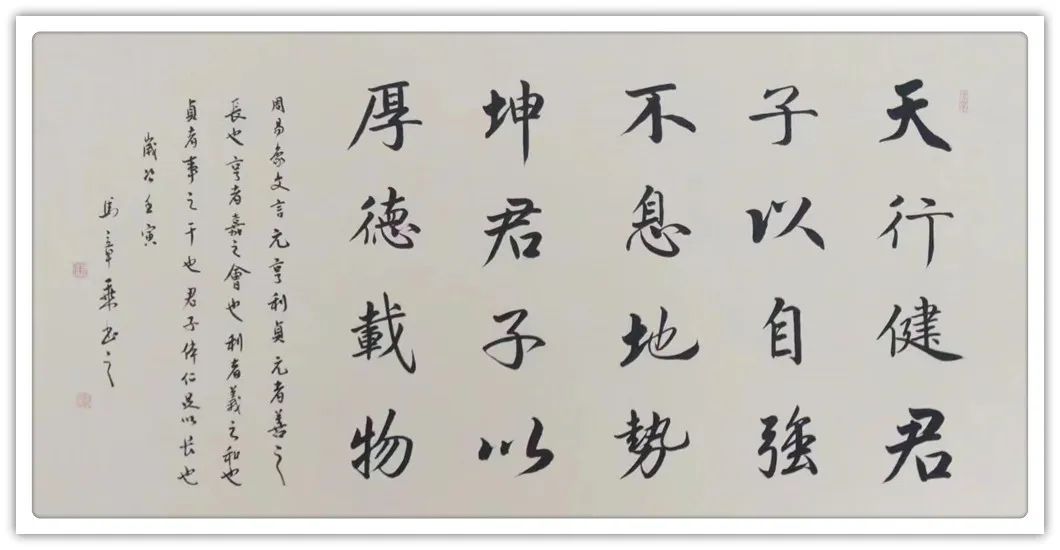 天行健君
子以自強
不息地勢
坤君子以
厚德載物
周易象文言元亨利貞元者善之
長也亨者嘉之會也利者義之和也
貞者事之干也君子体仁足以长也
歲次壬寅
馬章乘书之